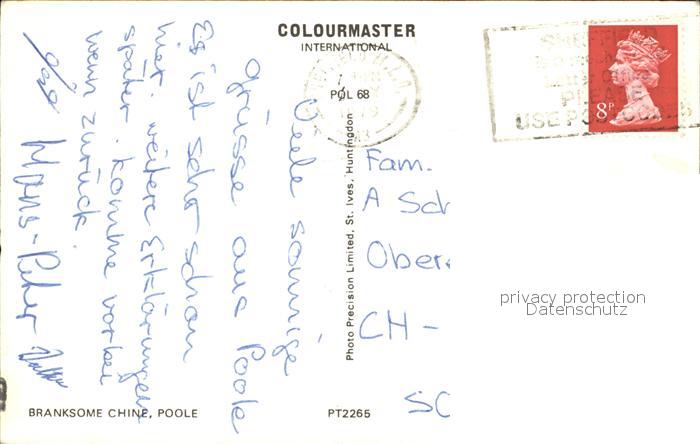 COLOURMASTER
INTERNATIONAL
POL 68
Viele sonnige
Grüsse aus Poole
Es ist sehr schön
hier. weitere Erklärungen
später. komme vorbei
wenn zurück.
Hans-Peter
Photo Precision Limited, St. Ives, Huntingdon
8P
PLEASE
USE POSTCODES
Fam.
A Sch
Ober
CH -
SC
privacy protection
Datenschutz
BRANKSOME CHINE, POOLE
PT2265